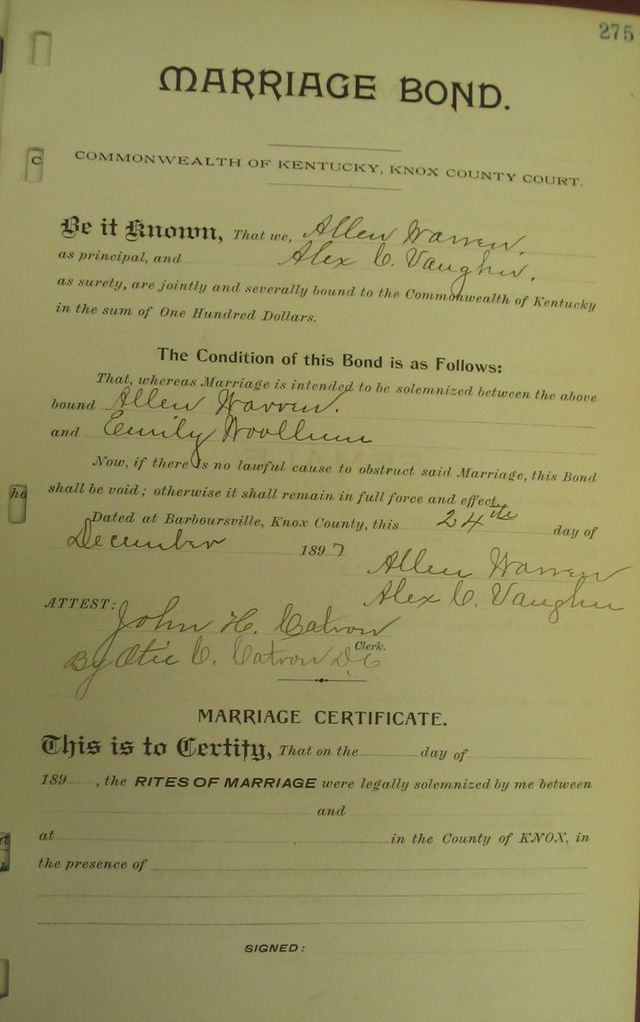 275
MARRIAGE BOND.
COMMONWEALTH OF KENTUCKY, KNOX COUNTY COURT.
Be it Known, That we, Allen Warren,
as principal, and Alex C. Vaughn,
as surety, are jointly and severally bound to the Commonwealth of Kentucky
in the sum of One Hundred Dollars.
The Condition of this Bond is as Follows:
That, whereas Marriage is intended to be solemnized between the above
bound Allen Warren.
and Emily Woollum
Now, if there is no lawful cause to obstruct said Marriage, this Bond
shall be void; otherwise it shall remain in full force and effect.
Dated at Barboursville, Knox County, this 24th day of
December 1897
Allen Warren
Alex C. Vaughn
ATTEST: John H. Catron
Clerk.
By Otie C. Catron D.C
MARRIAGE CERTIFICATE.
This is to Certify, That on the day of
189 , the RITES OF MARRIAGE were legally solemnized by me between
and
at in the County of KNOX, in
the presence of
SIGNED: